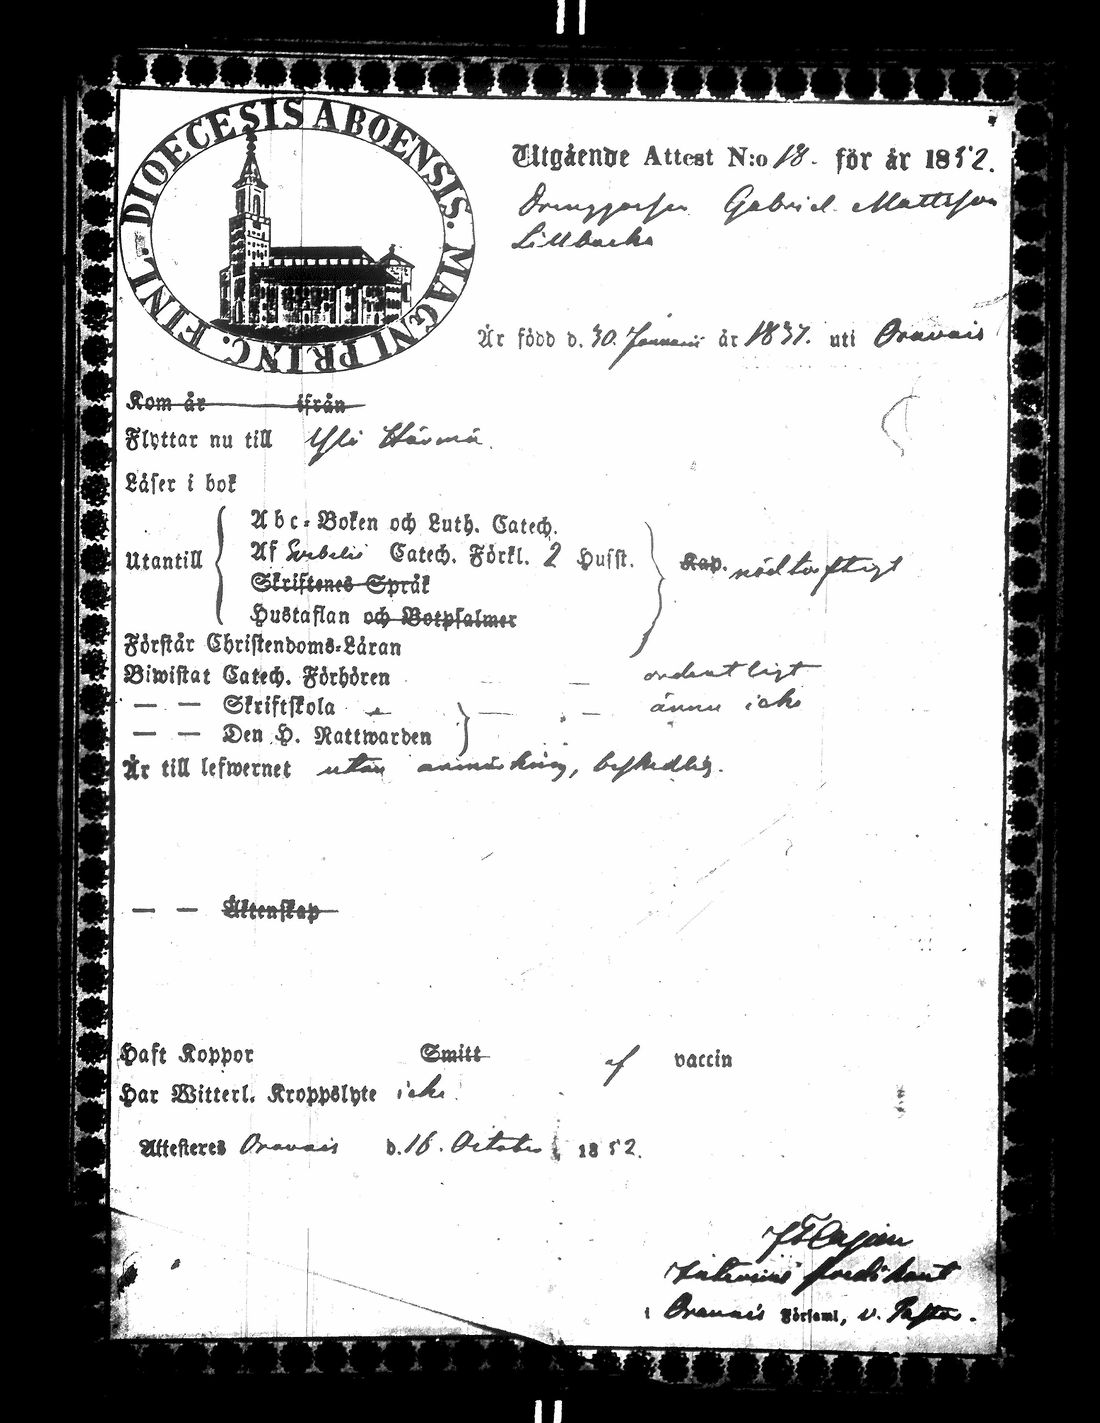 DIOECESIS ABOENSIS. MAGNI PRINC. FINL.
Utgående Attest N:o 18. för år 1852.
Drenggossen Gabriel Mattsson
Lillbacka
Är född d. 30. Januarii år 1837. uti Oravais
Kom år ifrån
Flyttar nu till Yli Härmä.
Läser i bok
Utantill
Abc-Boken och Luth. Catech.
Af Svebelii Catech. Förkl. 2 Husst.
Skriftenes Språk
Hustaflan och Botpsalmer
Kap. nödtorftigt
Förstår Christendoms-Läran
Biwistat Catech. Förhören — — ordentligt
— — Skriftskola — — ännu icke
— — Den H. Nattwarden
Är till lefwernet utan anmärkning, beskedlig.
— — Äktenskap
Haft Koppor Smitt af vaccin
Har Witterl. Kroppslyte icke
Attesteres Oravais d. 16. October 1852.
Interims predikant
i Oravais Församl, v. Pastor.